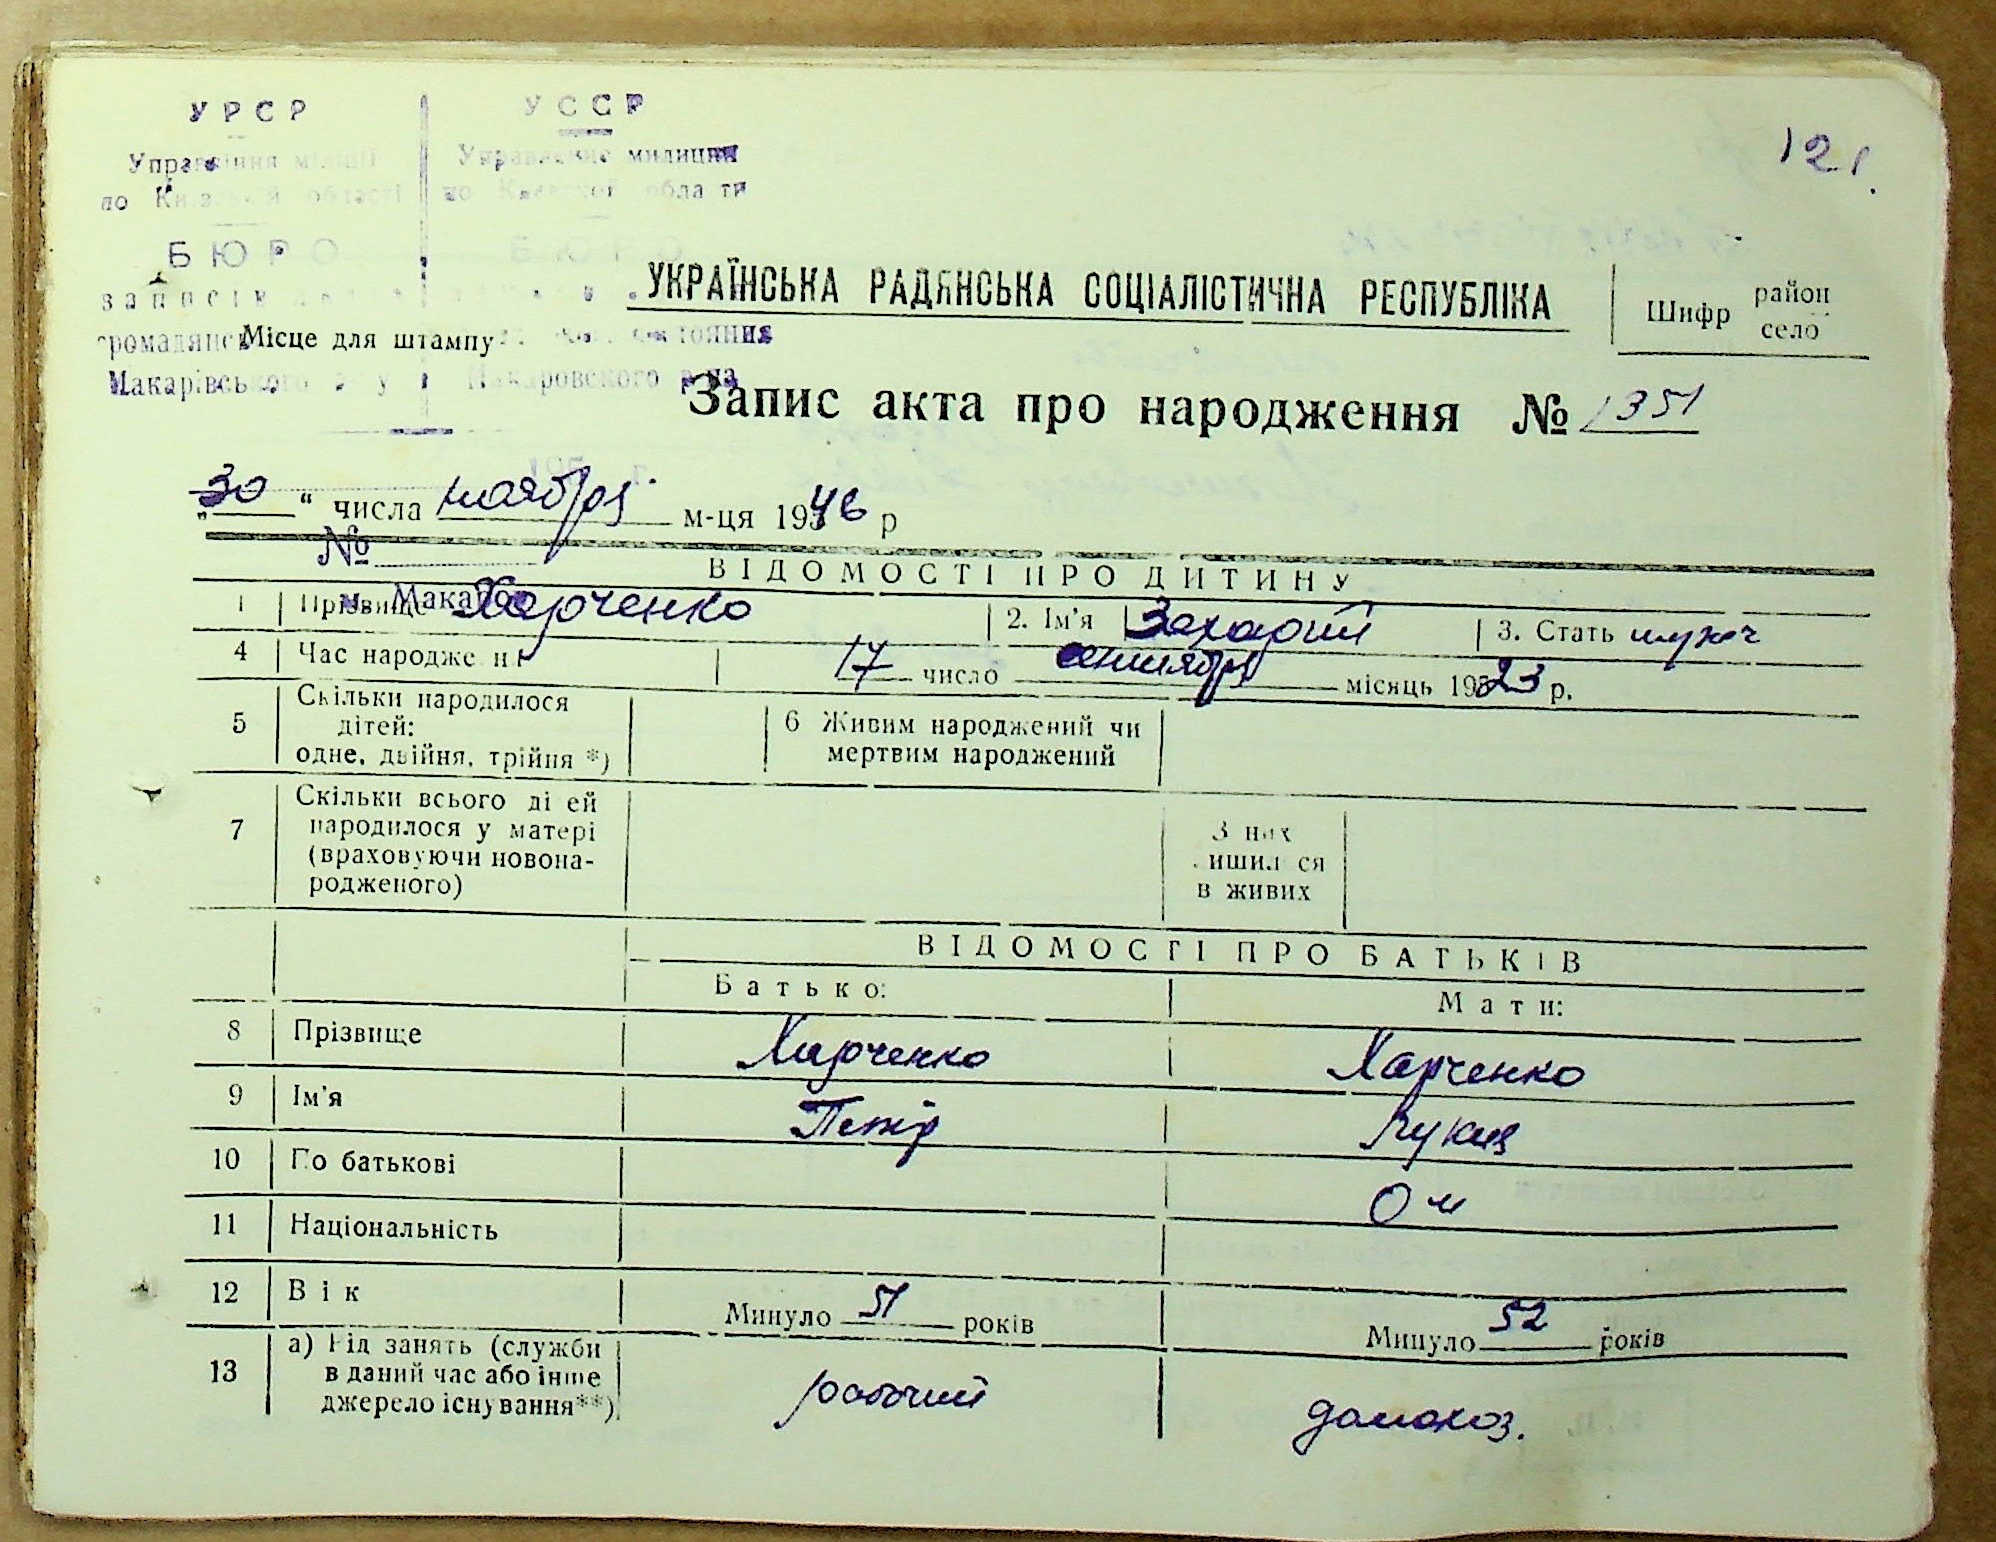 УРСР
УССР
Управління міліції
Управление милиции
по Київській області
по Киевской области
БЮРО
БЮРО
записів
громадянс
состояния
Макарівського р-ну
Макаровского р-на
121.
УКРАЇНСЬКА РАДЯНСЬКА СОЦІАЛІСТИЧНА РЕСПУБЛІКА
Шифр район село
Місце для штампу
Запис акта про народження № 1351
„30“ числа ноября м-ця 1946 р
№
м. Макарів
ВІДОМОСТІ ПРО ДИТИНУ
1 Прізвище Харченко 2. Ім'я Захарий 3. Стать муж
4 Час народження 17 число сентября місяць 1923 р.
5 Скільки народилося дітей: одне, двійня, трійня *) 6 Живим народжений чи мертвим народжений
7 Скільки всього дітей народилося у матері (враховуючи новонародженого) З них лишилося в живих
ВІДОМОСТІ ПРО БАТЬКІВ
Батько: Мати:
8 Прізвище Харченко Харченко
9 Ім'я Петір
10 По батькові
11 Національність
12 Вік Минуло 51 років Минуло 52 років
13 а) Рід занять (служби в даний час або інше джерело існування**) рабочий домохоз.